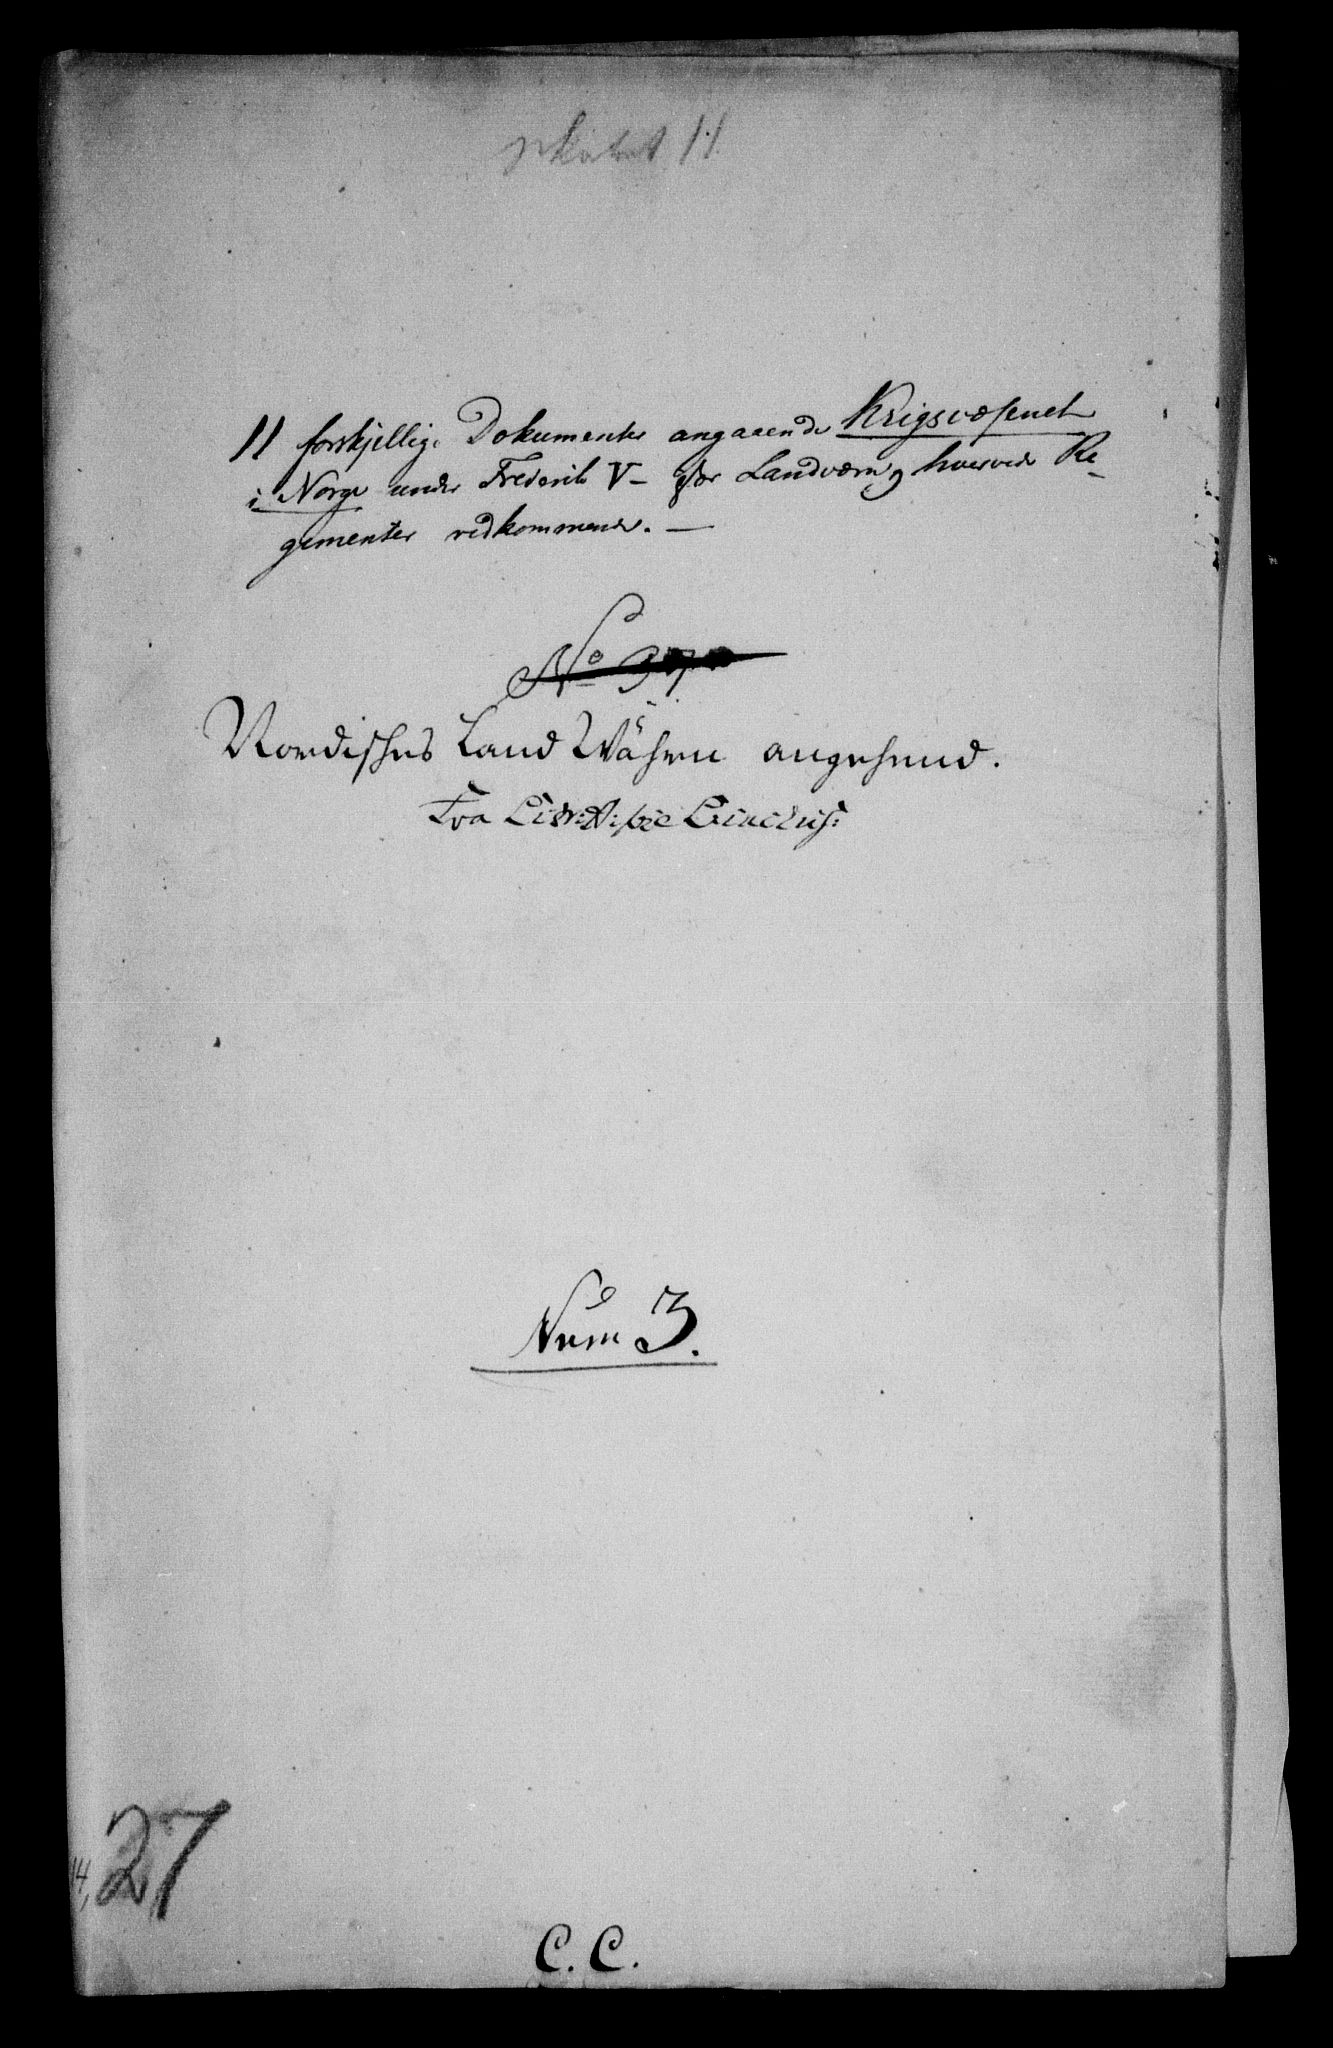 11 forskjellige Dokumenter angaaende Krigsvæsenet
i Norge under Frederik V – især Landværn og hvervede Re-
gementer vedkommende. —
No
Nordisches Land Wähsen angehend.
Fra
Num 3.
14, 27
C. C.